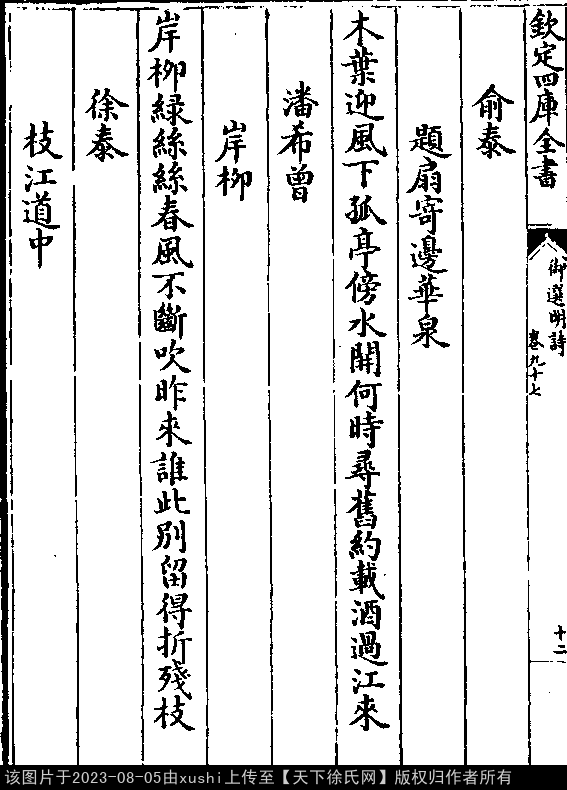 欽定四庫全書
御選明詩
卷九十七
十二
俞泰
題扇寄邊華泉
木葉迎風下孤亭傍水開何時尋舊約載酒過江來
潘希曾
岸柳
岸柳緑絲絲春風不斷吹昨來誰此別留得折殘枝
徐泰
枝江道中
该图片于2023-08-05由xushi上传至【天下徐氏网】版权归作者所有